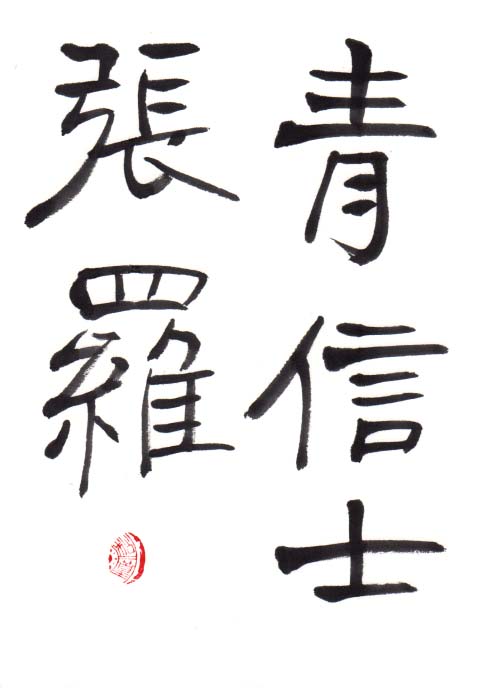 青信士
張羅